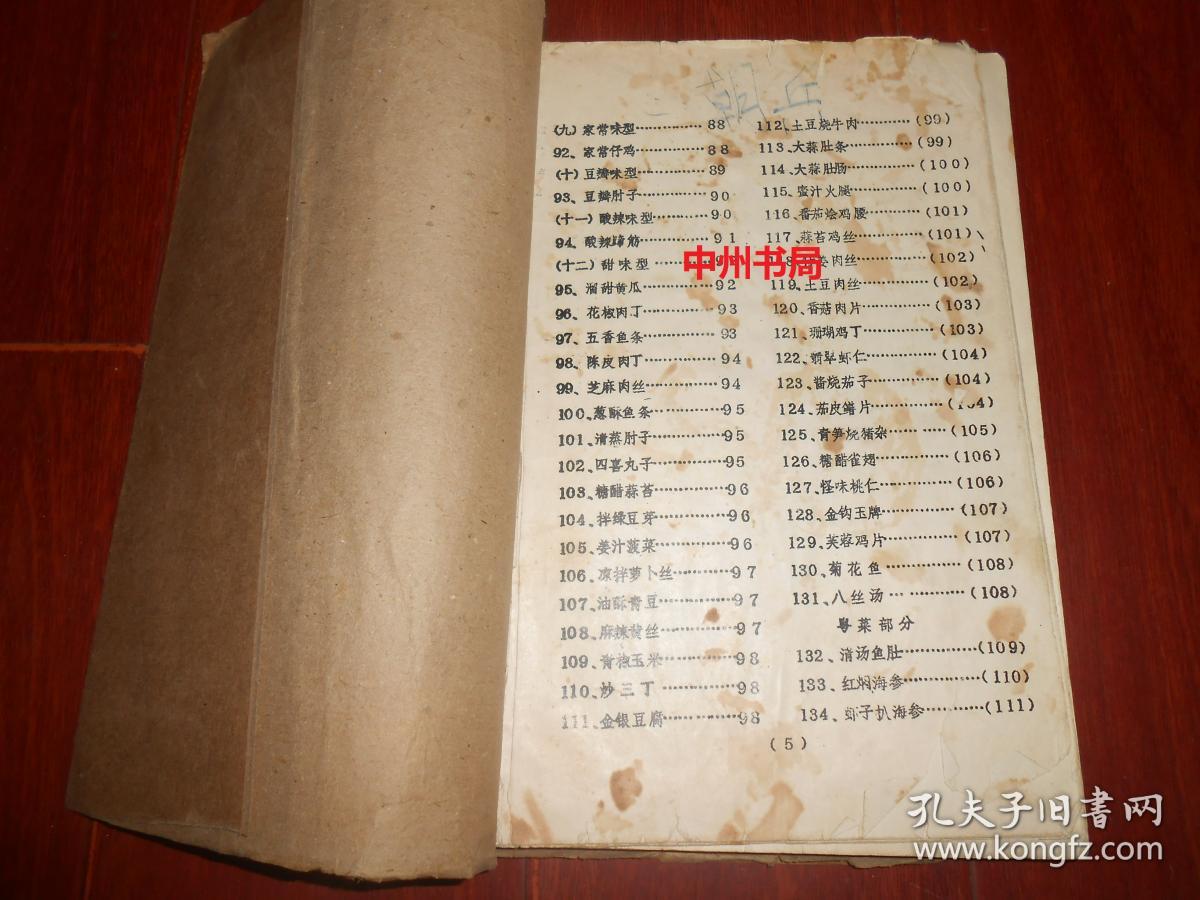 (九)家常味型…………88
92、家常仔鸡…………88
(十)豆瓣味型…………89
93、豆瓣肘子…………90
(十一)酸辣味型………90
94、酸辣蹄筋…………91
(十二)甜味型
95、溜甜黄瓜…………92
96、花椒肉丁…………93
97、五香鱼条…………93
98、陈皮肉丁…………94
99、芝麻肉丝…………94
100、葱酥鱼条…………95
101、清蒸肘子…………95
102、四喜丸子…………95
103、糖醋蒜苔…………96
104、拌绿豆芽…………96
105、姜汁菠菜…………96
106、凉拌萝卜丝………97
107、油酥青豆…………97
108、麻辣黄丝…………97
109、青椒玉米…………98
110、炒三丁……………98
111、金银豆腐…………98
112、土豆烧牛肉………(99)
113、大蒜肚条…………(99)
114、大蒜肚肠…………(100)
115、蜜汁火腿…………(100)
116、番茄烩鸡腰………(101)
117、蒜苔鸡丝…………(101)
姜肉丝…………(102)
119、土豆肉丝…………(102)
120、香菇肉片…………(103)
121、珊瑚鸡丁…………(103)
122、翡翠虾仁…………(104)
123、酱烧茄子…………(104)
124、茄皮鳝片…………(104)
125、青笋烧猪杂………(105)
126、糖醋雀翅…………(106)
127、怪味桃仁…………(106)
128、金钩玉牌…………(107)
129、芙蓉鸡片…………(107)
130、菊花鱼……………(108)
131、八丝汤……………(108)
粤菜部分
132、清汤鱼肚…………(109)
133、红焖海参…………(110)
134、虾子扒海参………(111)
(5)
中州书局
孔夫子旧書网
www.kongfz.com